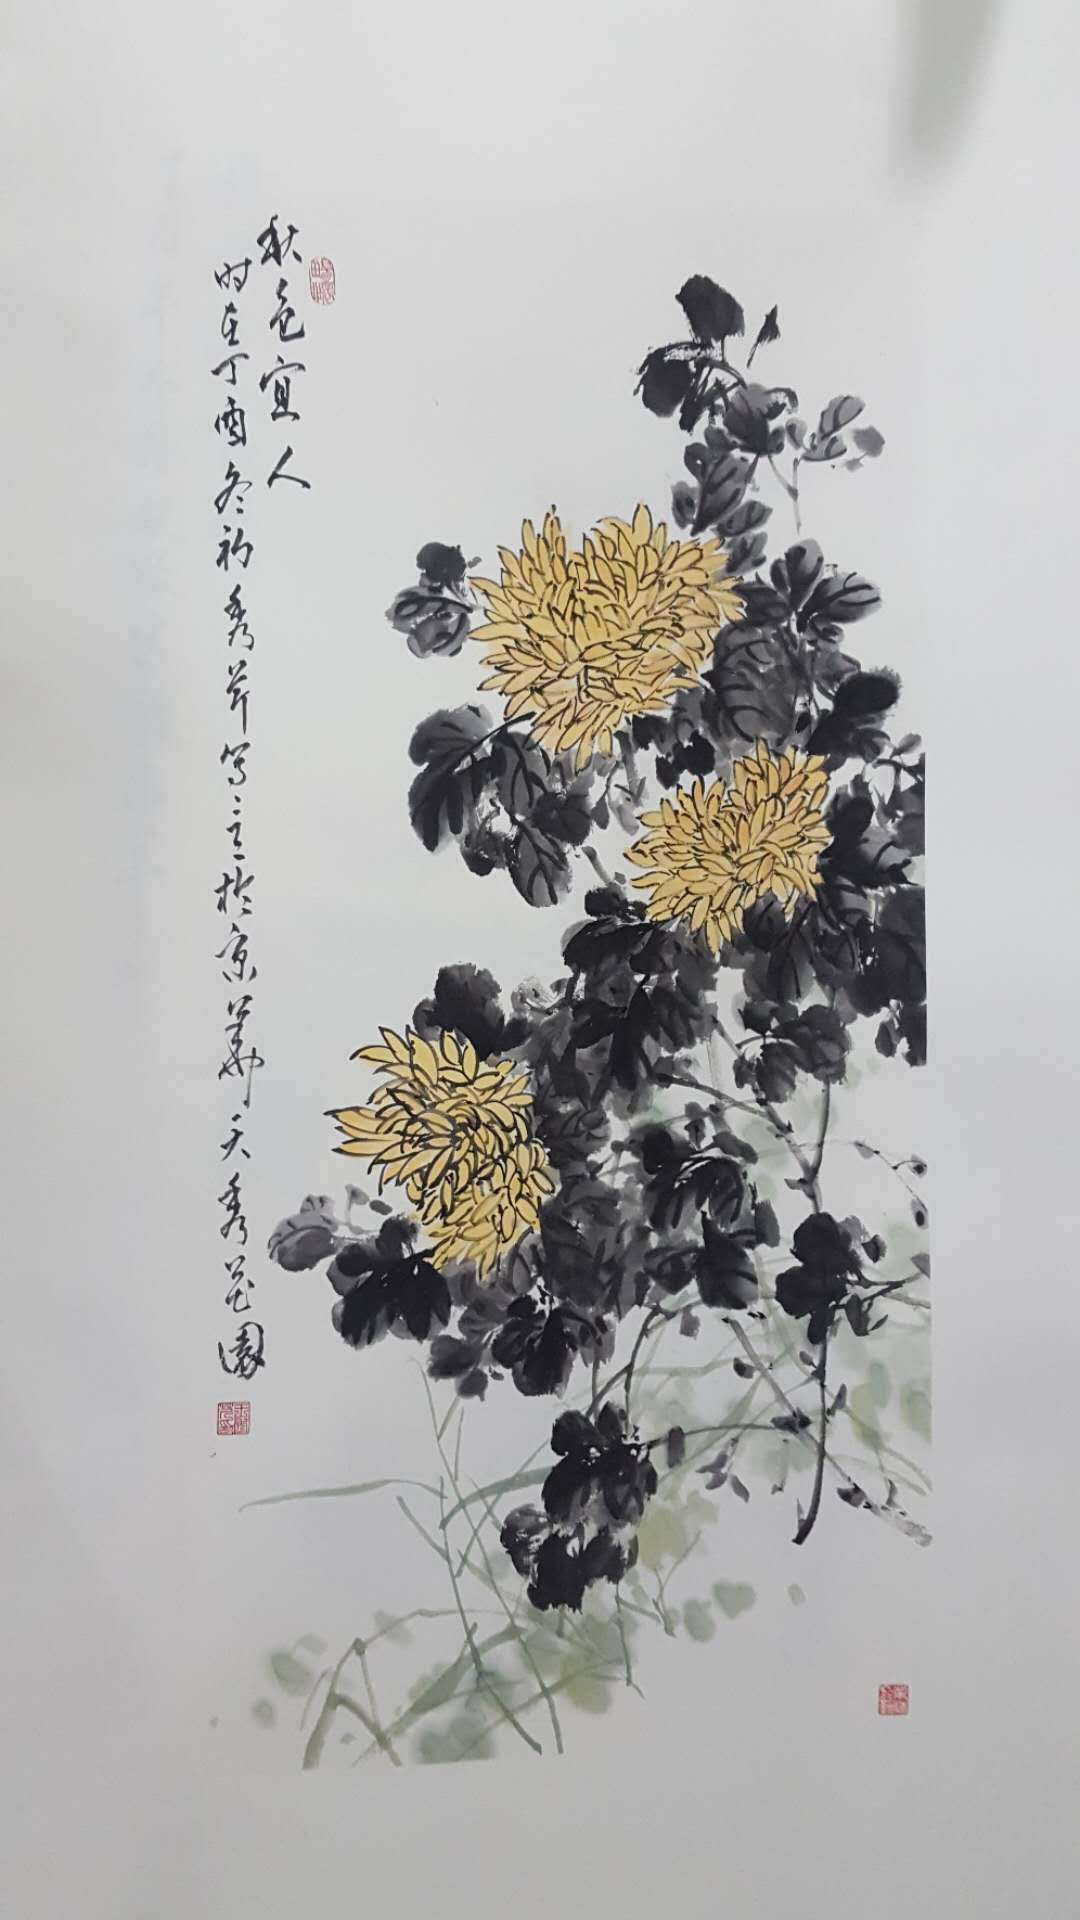 秋色宜人
时在丁酉冬初秀芹写之于京华天秀花园